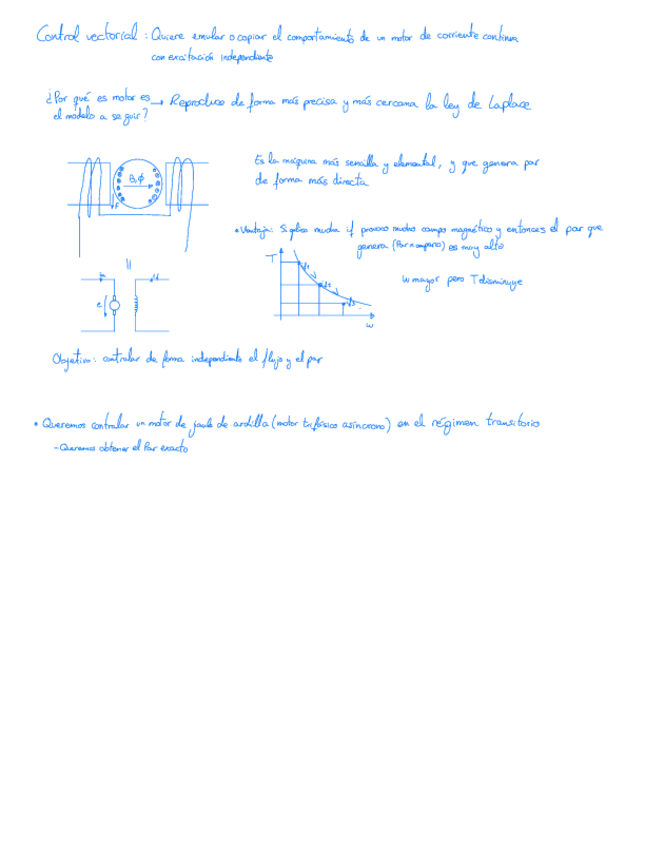 Control vectorial : Quiere emular o copiar el comportamiento de un motor de corriente continua
con excitación independiente
¿Por qué es motor es → Reproduce de forma más precisa y más cercana la ley de Laplace
el modelo a seguir?
Es la máquina más sencilla y elemental, y que genera par
de forma más directa
B,ϕ
F
• Ventaja: Si aplico mucha if provoco mucho campo magnético y entonces el par que
genera (Par x amperio) es muy alto
T
w mayor pero T disminuye
e
w
Objetivo: controlar de forma independiente el flujo y el par
• Queremos controlar un motor de jaula de ardilla (motor trifásico asíncrono) en el régimen transitorio
- Queremos obtener el Par exacto